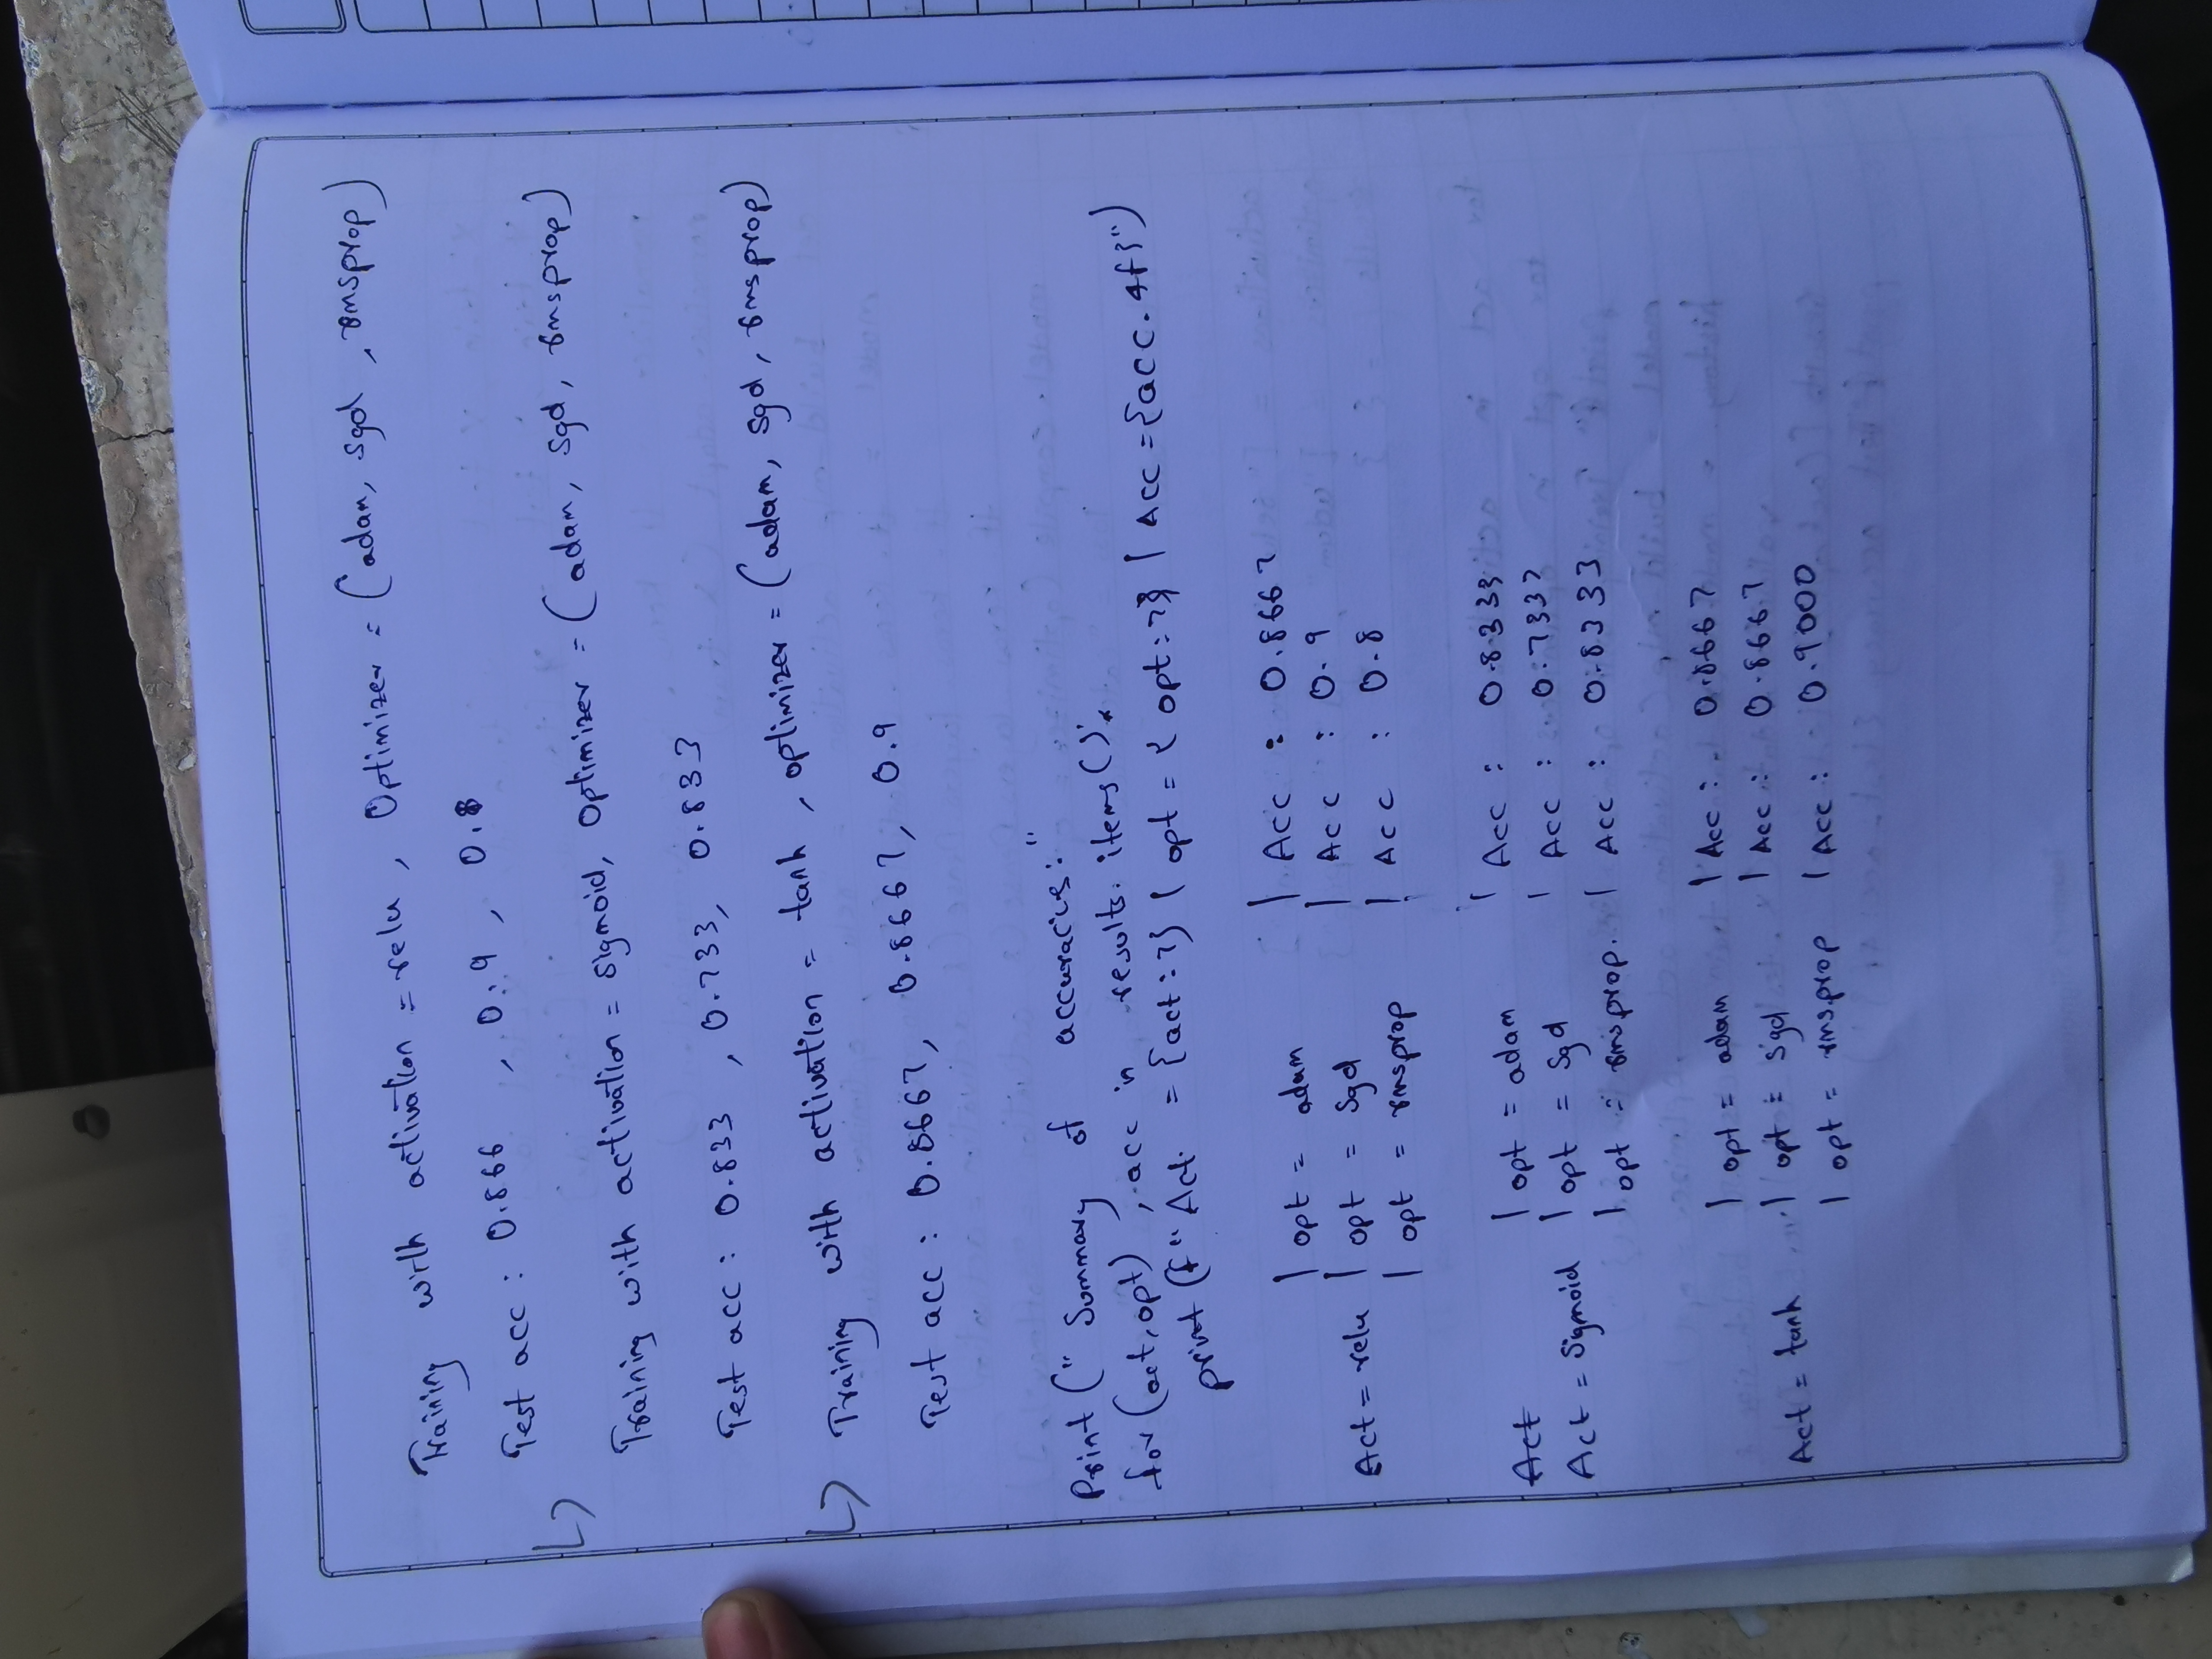 Training with activation = relu, Optimizer = (adam, sgd, rmsprop)
Test acc : 0.866, 0.9, 0.8
Training with activation = Sigmoid, Optimizer = (adam, sgd, rmsprop)
Test acc : 0.833, 0.733, 0.833
Training with activation = tanh, optimizer = (adam, sgd, rmsprop)
Test acc : 0.8667, 0.8667, 0.9
Print (" Summary of accuracies:"
for (act, opt), acc in results. items():
print (f" Act = {act:7} | opt = { opt:7} | Acc = {acc.4f}")
| opt = adam | Acc : 0.8667
Act = relu | opt = sgd | Acc : 0.9
| opt = rmsprop | Acc : 0.8
Act | opt = adam | Acc : 0.8333
Act = Sigmoid | opt = sgd | Acc : 0.7337
| opt = rmsprop. | Acc : 0.8333
| opt = adam | Acc : 0.8667
| opt = sgd | Acc : 0.8667
Act = tanh | opt = rmsprop | Acc : 0.9000